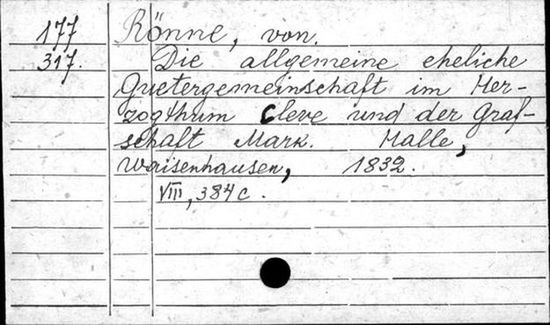 177 Rönne, von.
317. Die allgemeine eheliche
Guetergemeinschaft im Her-
zogthum Cleve und der Graf-
schaft Mark. Halle,
Waisenhausen, 1832.
VIII, 384 c.